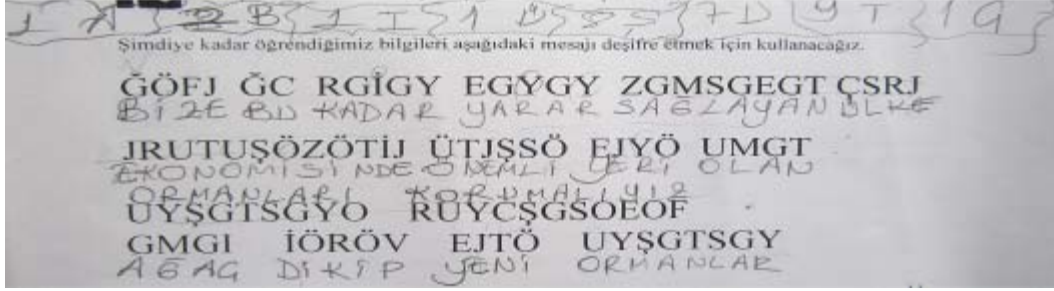 Şimdiye kadar öğrendiğimiz bilgileri aşağıdaki mesajı deşifre etmek için kullanacağız.
ĞÖFJ ĞC RGİGY EGYGY ZGMSGEGT ÇSRJ
BİZE BU KADAR YARAR SAĞLAYAN ÜLKE
JRUTUŞÖZÖTİJ ÜTJŞSÖ EJYÖ UMGT
EKONOMİSİNDE ÖNEMLİ YERİ OLAN
ORMANLARI KORUMALIYIZ
UYŞGTSGYO RUYCŞGSOEOF
GMGI İÖRÖV EJTÖ UYŞGTSGY
AĞAÇ DİKİP YENİ ORMANLAR